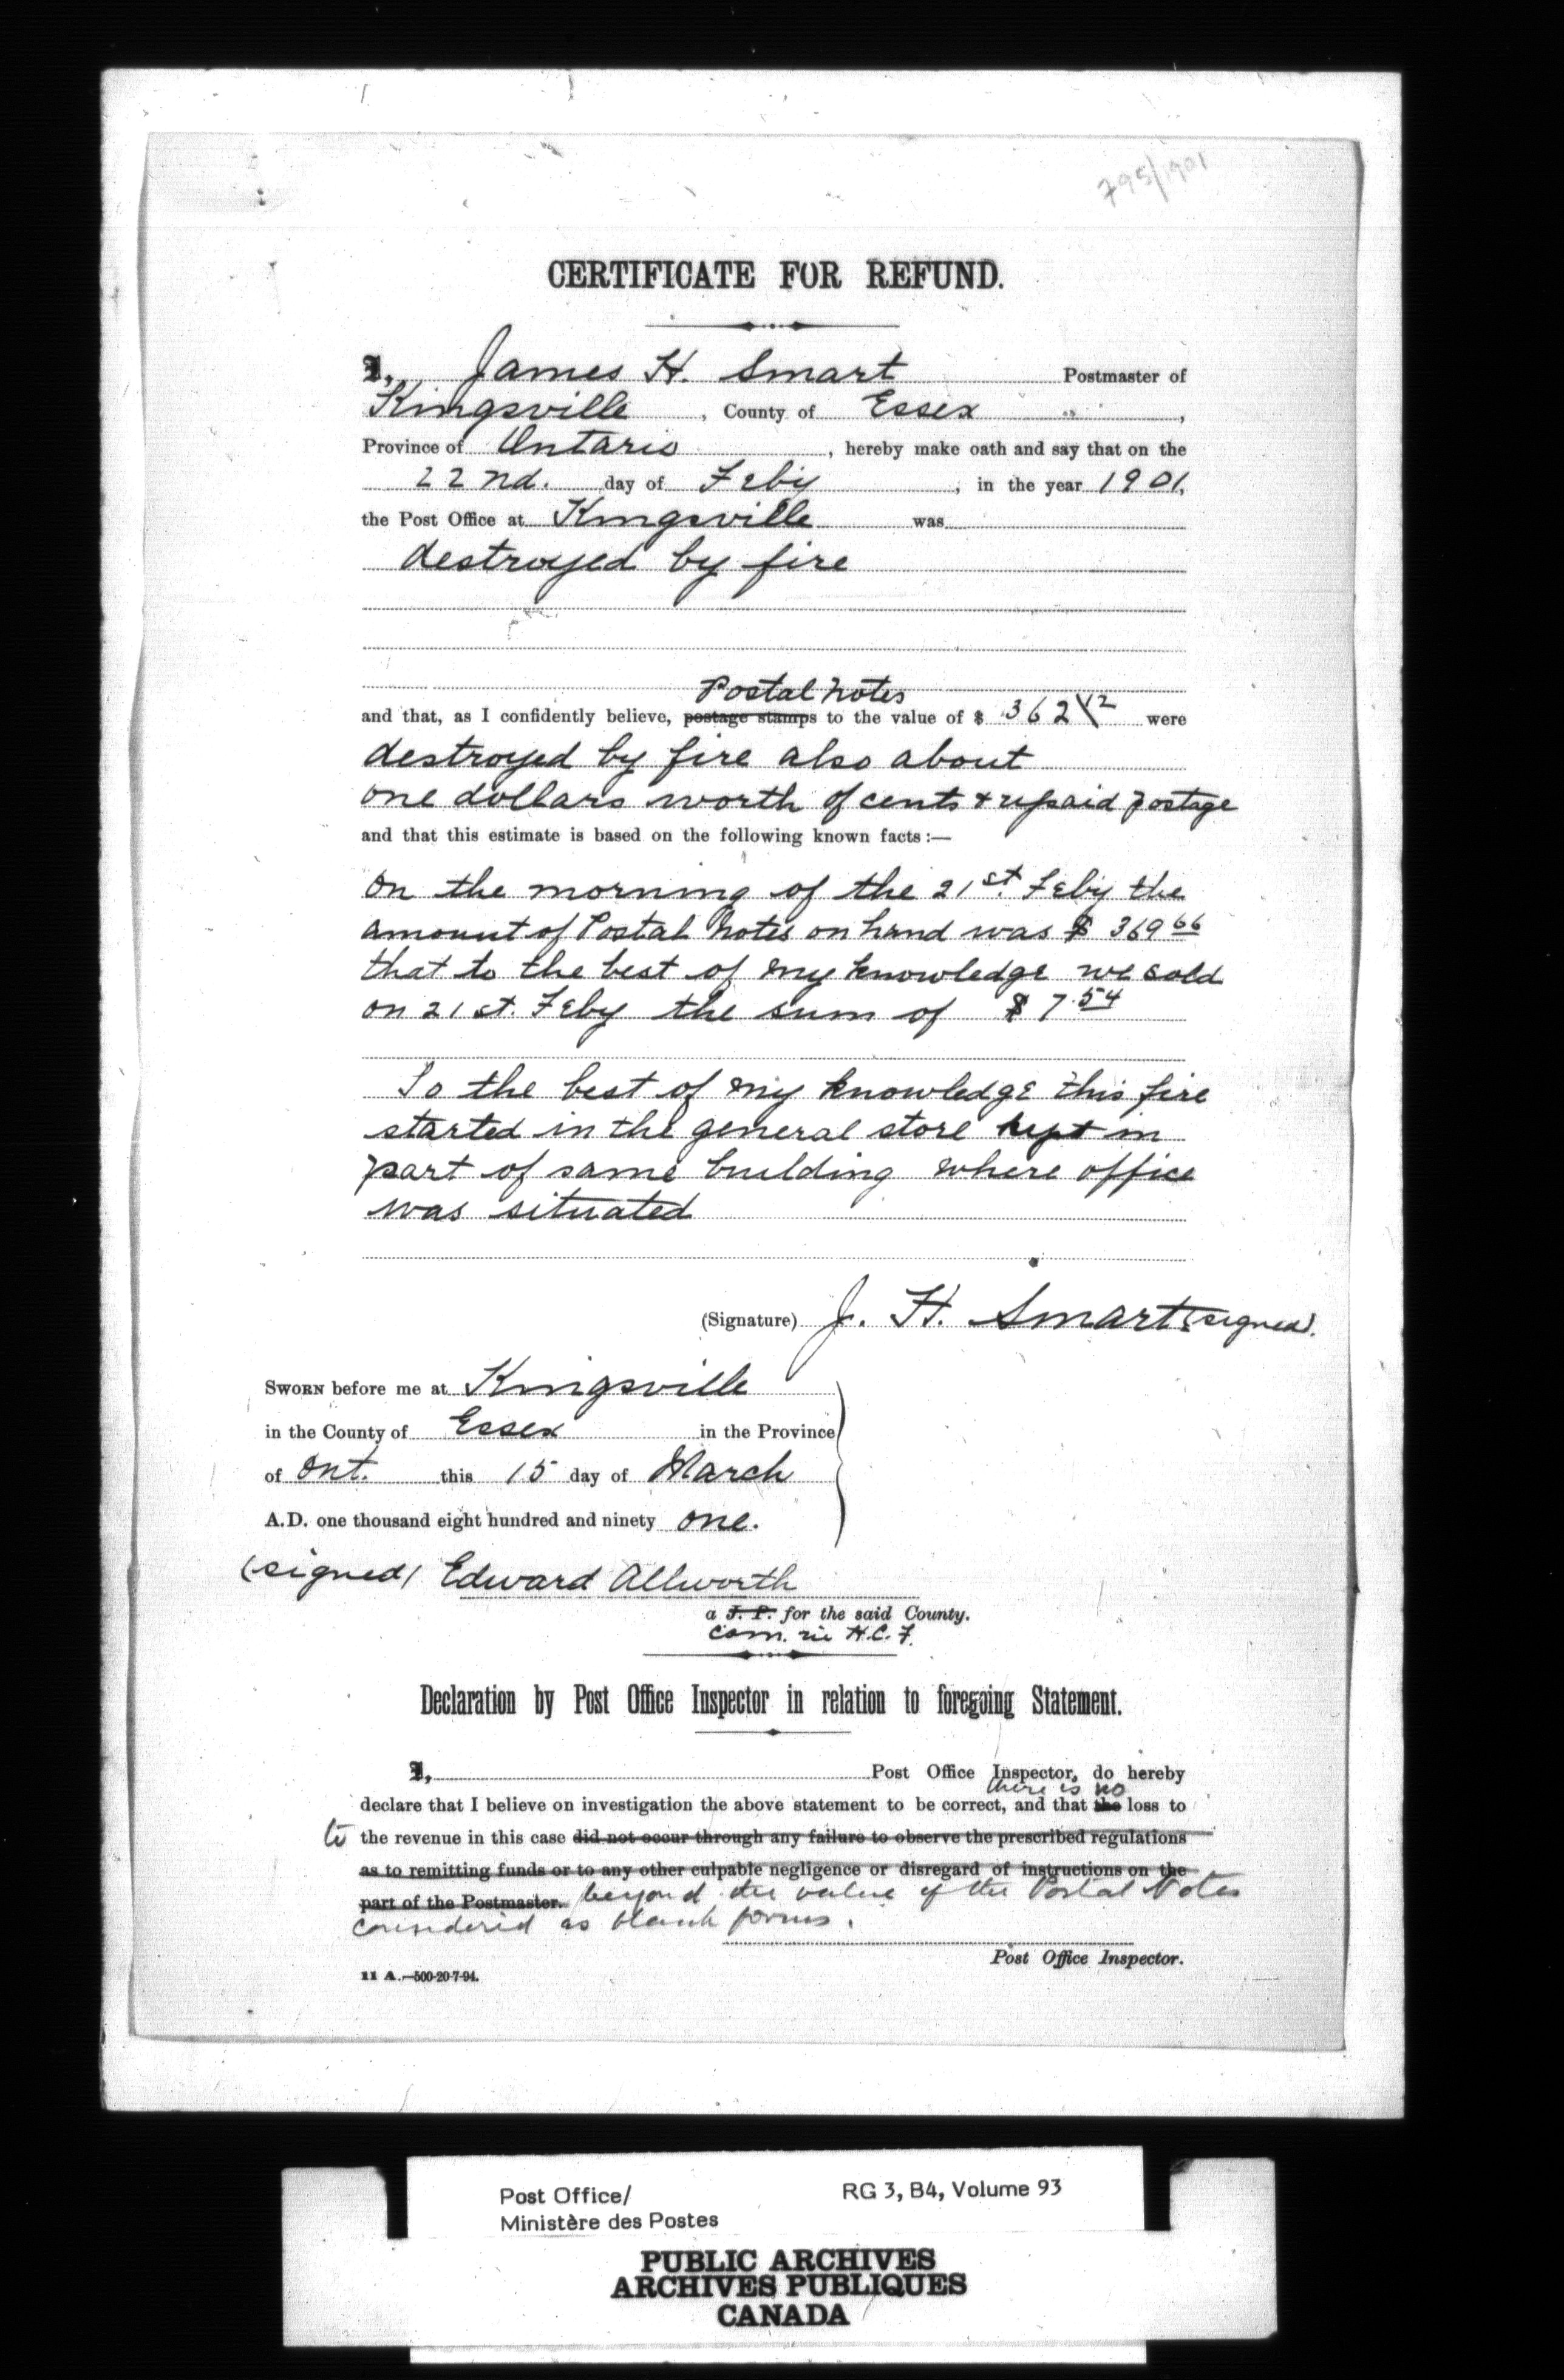 795/1901
CERTIFICATE FOR REFUND.
I, James H. Smart Postmaster of
Kingsville, County of Essex " ,
Province of Ontario, hereby make oath and say that on the
22nd. day of Feby, in the year 1901,
the Post Office at Kingsville was
destroyed by fire
Postal Notes
and that, as I confidently believe, postage stamps to the value of $ 362 12 were
destroyed by fire also about
one dollars worth of cents & upaid postage
and that this estimate is based on the following known facts :—
On the morning of the 21st. Feby the
amount of Postal Notes on hand was $ 369 66
that to the best of my knowledge we sold
on 21st. Feby the sum of $ 7.54
To the best of my knowledge this fire
started in the general store kept in
part of same building where office
was situated
(Signature) J. H. Smart (signed).
SWORN before me at Kingsville
in the County of Essex in the Province
of Ont. this 15 day of March
A.D. one thousand eight hundred and ninety one.
(signed) Edward Allworth
a J. P. for the said County.
Com. in H.C.J.
Declaration by Post Office Inspector in relation to foregoing Statement.
I, Post Office Inspector, do hereby
there is no
declare that I believe on investigation the above statement to be correct, and that the loss to
to the revenue in this case did not occur through any failure to observe the prescribed regulations
as to remitting funds or to any other culpable negligence or disregard of instructions on the
part of the Postmaster. beyond the value of the Postal Notes
considered as blank forms.
Post Office Inspector.
11 A.—500-20-7-94.
Post Office/
Ministère des Postes
RG 3, B4, Volume 93
PUBLIC ARCHIVES
ARCHIVES PUBLIQUES
CANADA